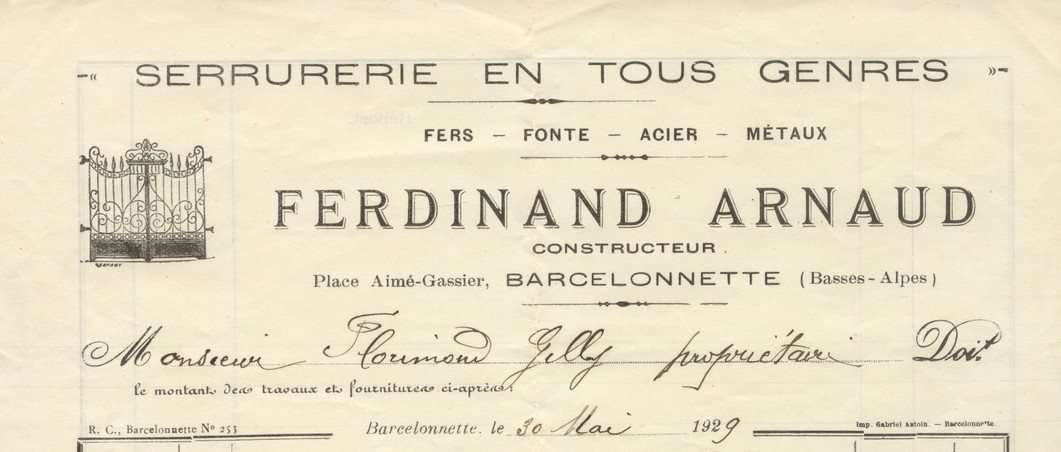 -« SERRURERIE EN TOUS GENRES »-
FERS - FONTE - ACIER - MÉTAUX
FERDINAND ARNAUD
CONSTRUCTEUR.
Place Aimé-Gassier, BARCELONNETTE (Basses-Alpes)
Monsieur Florimond Gilly propriétaire Doit
le montant des travaux et fournitures ci-après.
R. C., Barcelonnette N° 253 Barcelonnette. le 30 Mai 1929 Imp. Gabriel Astoin. — Barcelonnette.